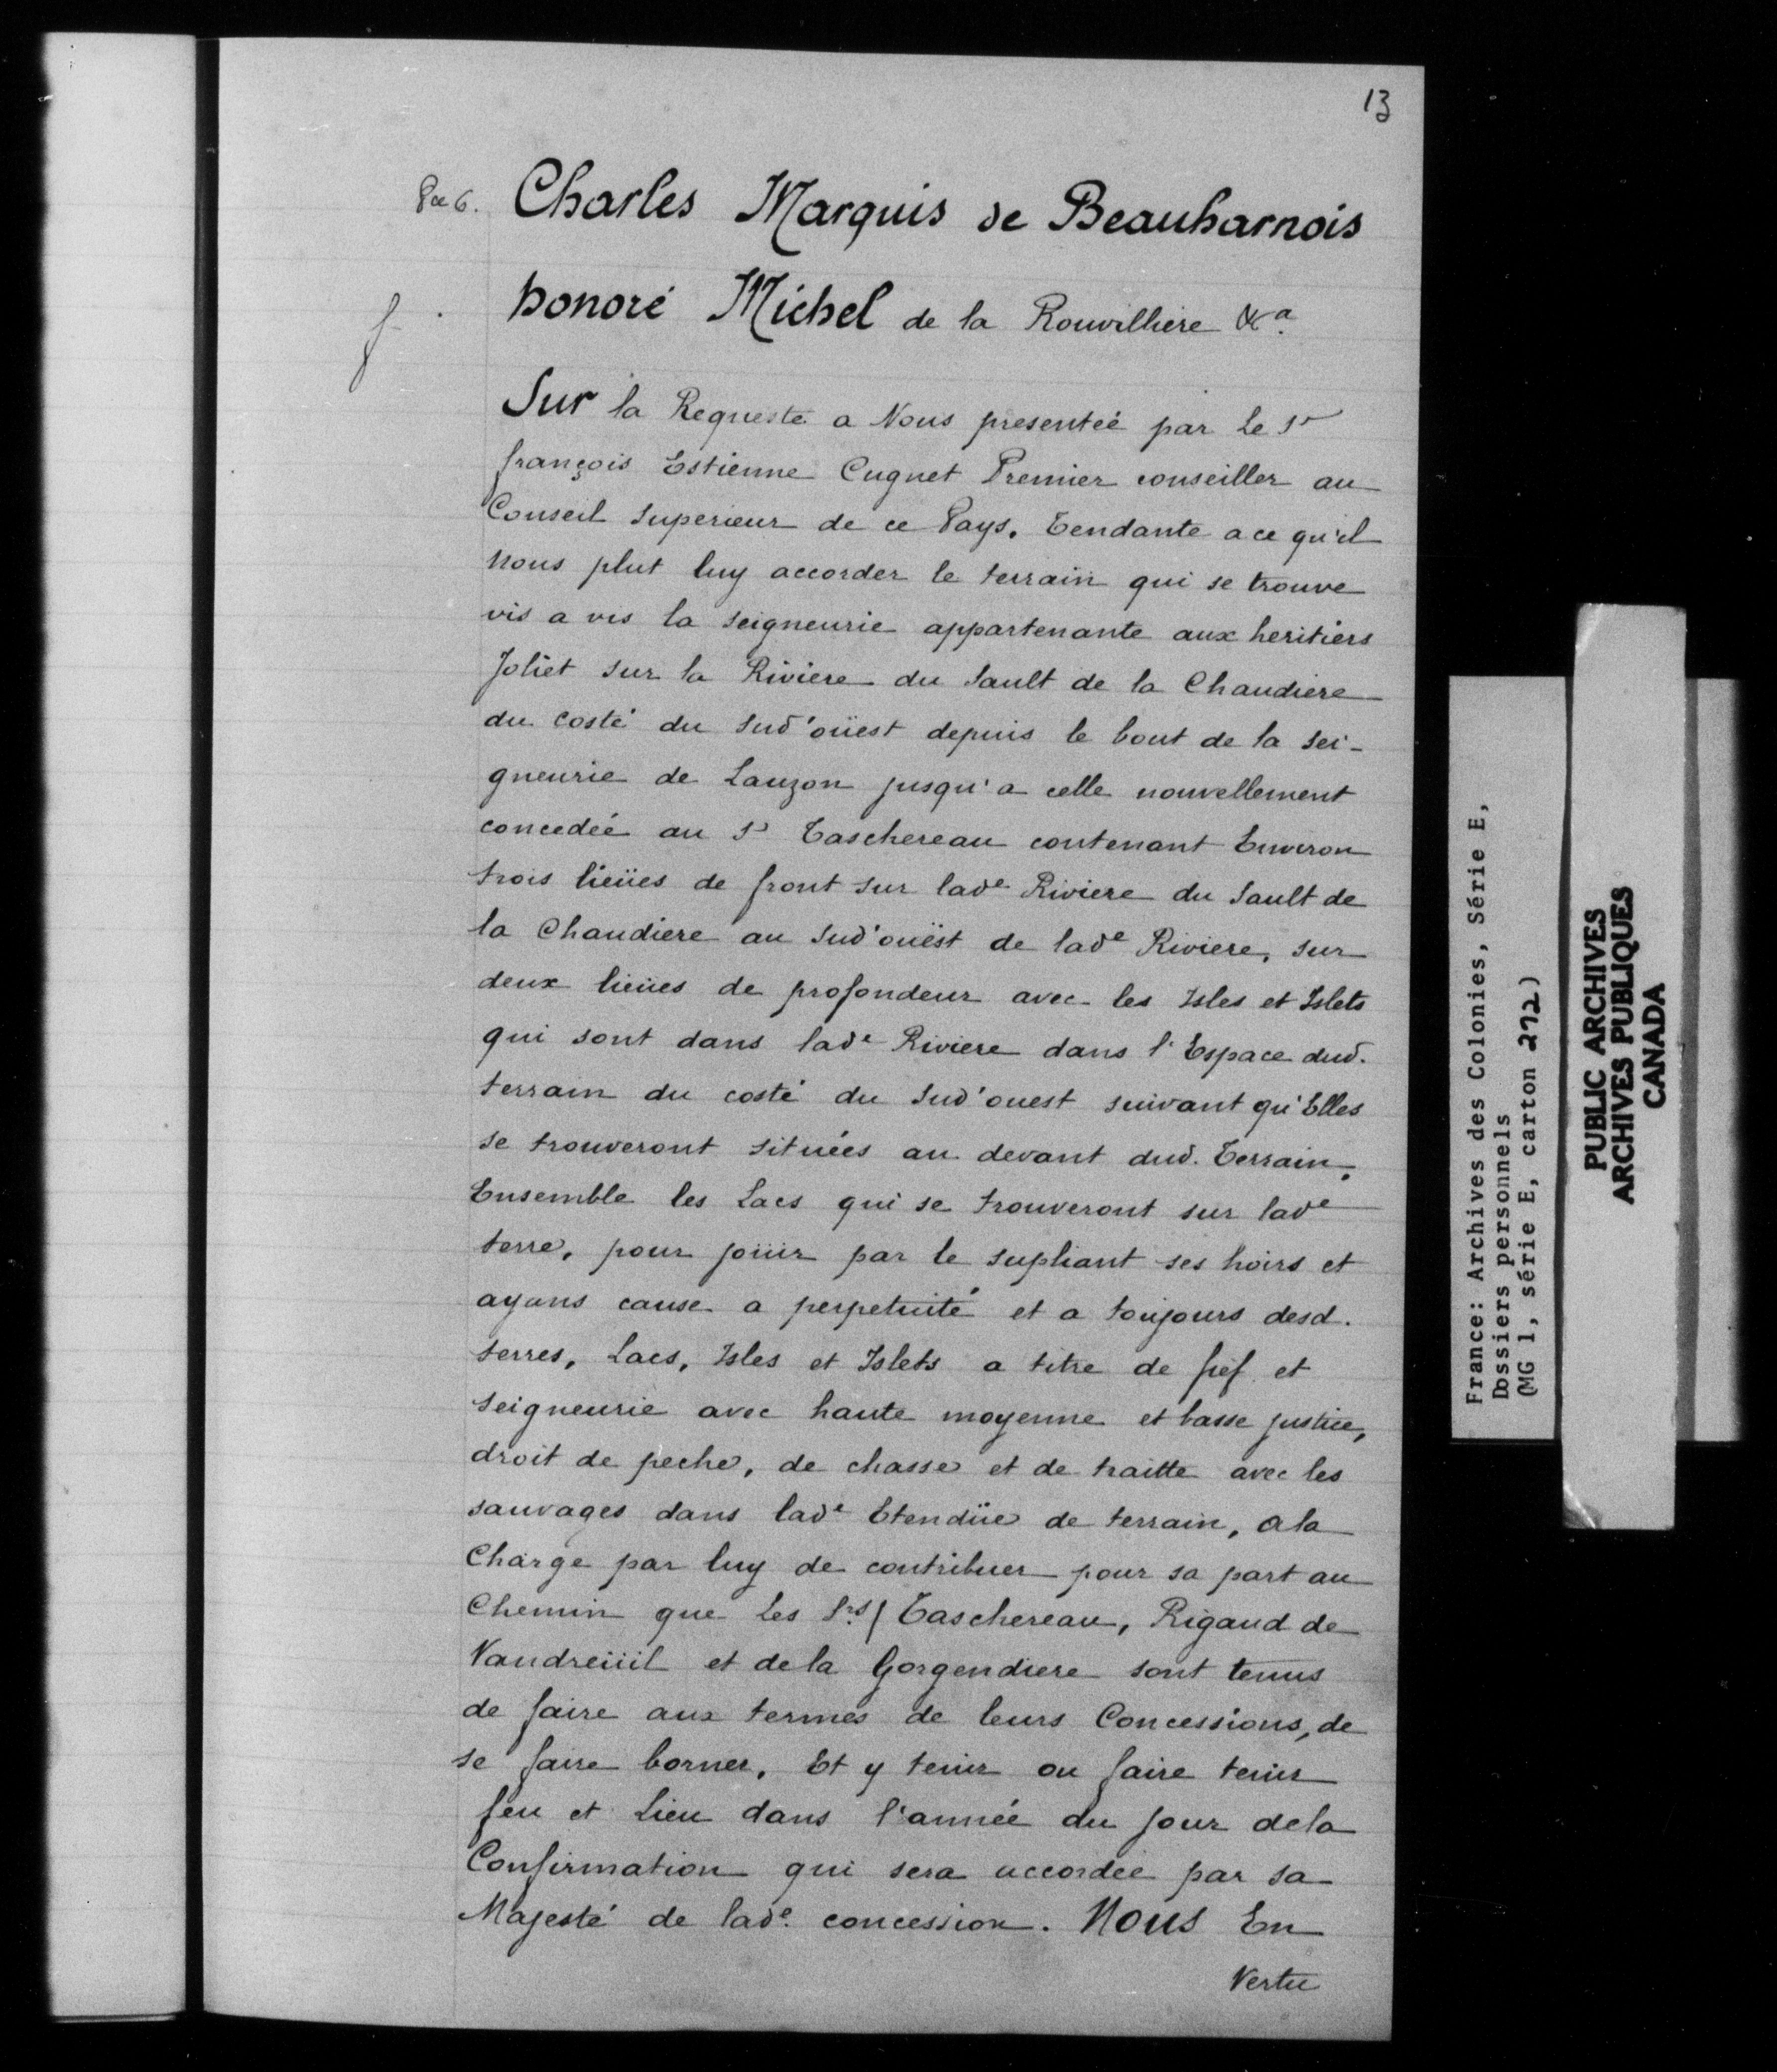 13
Pce 6. Charles Marquis de Beauharnois
honoré Michel de la Rouvilliere &a.
Sur la Requeste a Nous presenteé par Le Sr
françois Estienne Cugnet Premier conseiller au
Conseil Superieur de ce Pays. Tendante a ce qu'il
nous plut luy accorder le terrain qui se trouve
vis a vis la seigneurie appartenante aux heritiers
Joliet sur la Riviere du Sault de la Chaudiere
du costé du Sud'oüest depuis le bout de la sei-
gneurie de Lauzon jusqu'a celle nouvellement
concedeé au Sr Taschereau contenant Environ
trois lieües de front sur lade Riviere du Sault de
la Chaudiere au Sud'oüest de lade Riviere, sur
deux lieües de profondeur avec les Isles et Islets
qui sont dans lade Riviere dans l'Espace dud.
terrain du costé du Sud'ouest suivant qu'Elles
se trouveront situées au devant dud. Terrain,
Ensemble les Lacs qui se trouveront sur lade
terre, pour joüir par le supliant ses hoirs et
ayans cause a perpetuité et a toujours desd.
terres, Lacs, Isles et Islets a titre de fief et
seigneurie avec haute moyenne et basse justice,
droit de peche, de chasse et de traitte avec les
sauvages dans lade Etendüe de terrain, a la
Charge par luy de contribuer pour sa part au
Chemin que Les Srs Taschereau, Rigaud de
Vaudreüil et de la Gorgendiere sont tenus
de faire aux termes de leurs Concessions, de
se faire borner, Et y tenir ou faire tenir
feu et Lieu dans l'année du jour dela
Confirmation qui sera accordée par sa
Majesté de lade. concession. Nous En
Vertu
France: Archives des Colonies, Série E,
Dossiers personnels
(MG 1, série E, carton 272)
PUBLIC ARCHIVES
ARCHIVES PUBLIQUES
CANADA